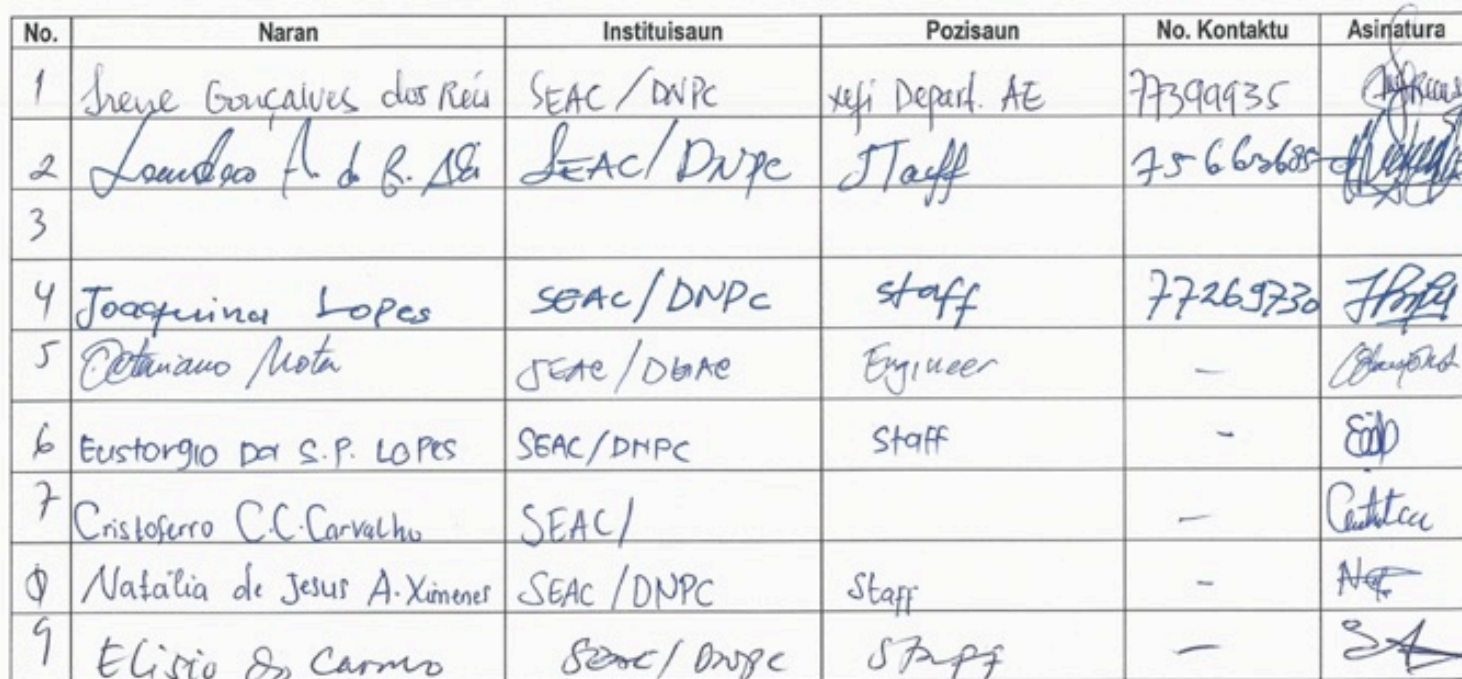 No. Naran Instituisaun Pozisaun No. Kontaktu Asinatura
1 Irene Gonçalves dos Reis SEAC / DNPC xefi Depart. AE 77399935
2 SEAC / DNPC Staff
3
4 Joaquina Lopes SEAC / DNPC staff 77269730
5 Octaviano Mota SEAC / Engineer -
6 Eustorgio Da S.P. LOPES SEAC / DNPC Staff -
7 Cristoferro C.C. Carvalho SEAC / -
8 Natália de Jesus A. Ximenes SEAC / DNPC Staff -
9 Elisio do Carmo SEAC / DNPC Staff -